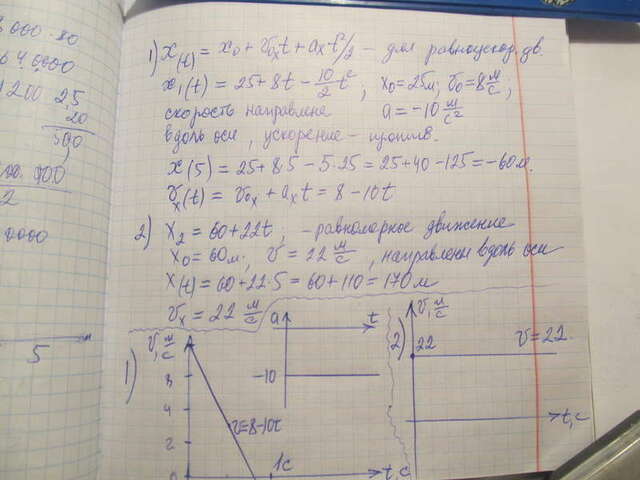 3000·80
64 0000
1200 25
20
500
100
2
0000
5
1) x(t) = x₀ + v₀ₓt + aₓt²/2 – для равноускор. дв.
x₁(t) = 25+8t – 10/2 t² ; x₀=25м; v₀=8 м/с ;
скорость направлена a = –10 м/с²
вдоль оси, ускорение – против.
x(5) = 25+8·5 – 5·25 = 25+40–125 = –60м.
vₓ(t) = v₀ₓ + aₓt = 8 – 10t
2) x₂ = 60+22t, – равномерное движение
x₀ = 60м; v = 22 м/с, направлена вдоль оси
x(t) = 60+22·5 = 60+110 = 170 м
vₓ = 22 м/с
1) v, м/с
8
4
2
0
v=8–10t
1с
t, с
a
t
–10
2) v, м/с
22
v=22
t, с